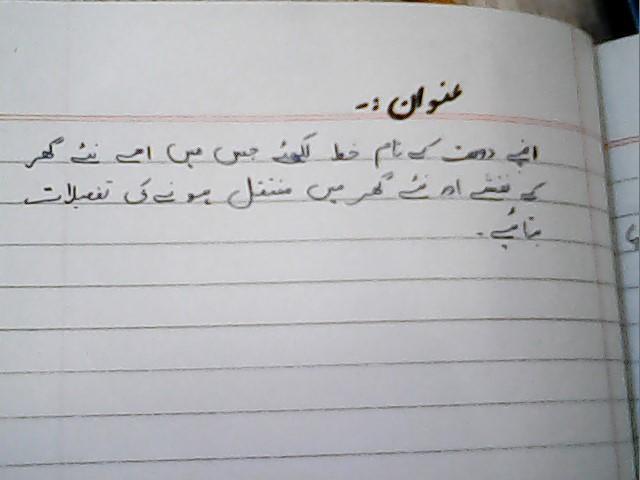 عنوان :-
اپنے دوست کے نام خط لکھئے جس میں اسے نئے گھر
کے نقشے اور نئے گھر میں منتقل ہونے کی تفصیلات
بتائیے۔